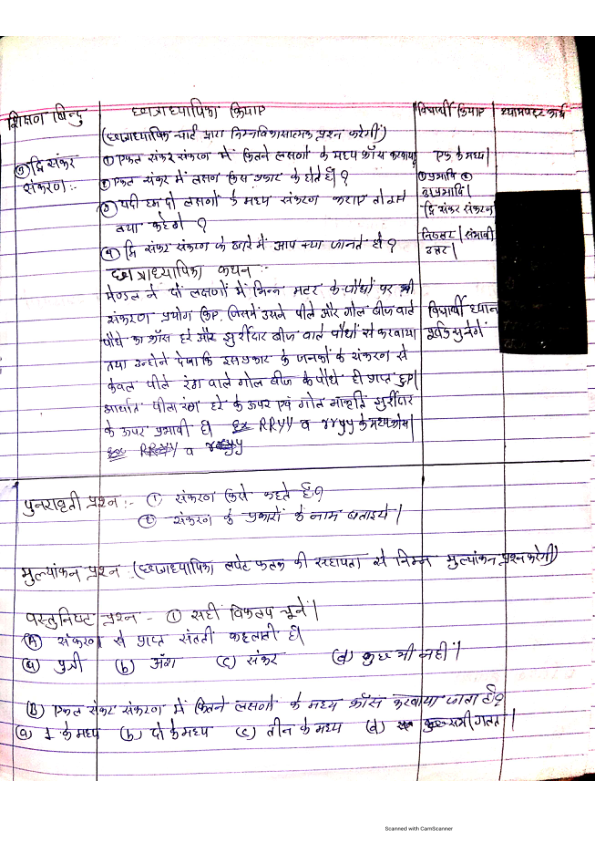 शिक्षण बिन्दु
छात्राध्यापिका क्रियाए
विद्यार्थी क्रियाए
श्यामपट्ट कार्य
(छात्राध्यापिका चार्ट द्वारा निम्न विकासात्मक प्रश्न करेगी)
③ द्वि संकर
संकरण:-
① एकल संकर संकरण में कितने लक्षणों के मध्य क्रॉस करवाया
एक के मध्य।
② एकल संकर में लक्षण किस प्रकार के होते हैं?
① प्रभावि ②
अप्रभावि।
③ यदी हम दो लक्षणों के मध्य संकरण कराए तो उसे
क्या कहेगे ?
द्वि संकर संकरन
④ द्वि संकर संकरण के बारे में आप क्या जानते हो ?
निरुत्तर | संभावी
उत्तर |
छात्राध्यापिका कथन :-
मेण्डल ने दो लक्षणों में भिन्न मटर के पौधों पर भी
संकरण प्रयोग किए, जिसमें उसने पीले और गोल बीज वाले
पौधे का क्रॉस हरे और झुर्रीदार बीज वाले पौधों से करवाया
विद्यार्थी ध्यान
पूर्वक सुनेगें
तथा उन्होंने देखा कि इस प्रकार के जनकों के संकरण से
केवल पीले रंग वाले गोल बीज के पौधे ही प्राप्त हुए।
अर्थात पीला रंग हरे के ऊपर एवं गोल आकृति झुर्रीदार
के ऊपर प्रभावी है। Ex RRYY व rryy के मध्य क्रॉस।
Ex RRYY व rryy
पुनरावृती प्रश्न :- ① संकरण किसे कहते हैं?
② संकरण के प्रकारों के नाम बताइये |
मुल्यांकन प्रश्न (छात्राध्यापिका लपेट फलक की सहायता से निम्न मुल्यांकन प्रश्न करेगी)
वस्तुनिष्ट प्रश्न - ① सही विकल्प चूनें|
(A) संकरण से प्राप्त संतती कहलाती है।
(a) पुत्री (b) अंग (c) संकर (d) कुछ भी नहीं |
(B) एकल संकर संकरण में कितने लक्षणों के मध्य क्रॉस करवाया जाता है?
(a) 1 के मध्य (b) दो के मध्य (c) तीन के मध्य (d) सभी गलत |
Scanned with CamScanner